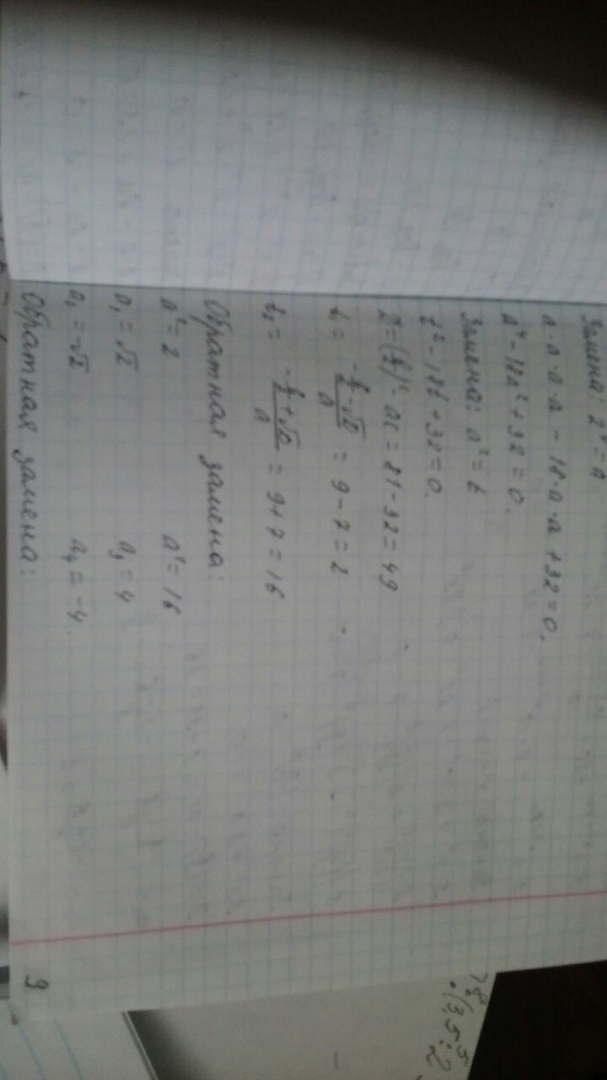 Замена: 2ˣ = a
a·a·a·a - 18·a·a + 32 = 0.
a⁴ - 18a² + 32 = 0.
Замена: a² = t
t² - 18t + 32 = 0.
D = (b/2)² - ac = 81 - 32 = 49
t₁ = (-b/2 - √D)/a = 9 - 7 = 2
t₂ = (-b/2 + √D)/a = 9 + 7 = 16
Обратная замена:
a² = 2 a² = 16
a₁ = √2 a₃ = 4
a₂ = -√2 a₄ = -4
Обратная замена:
9